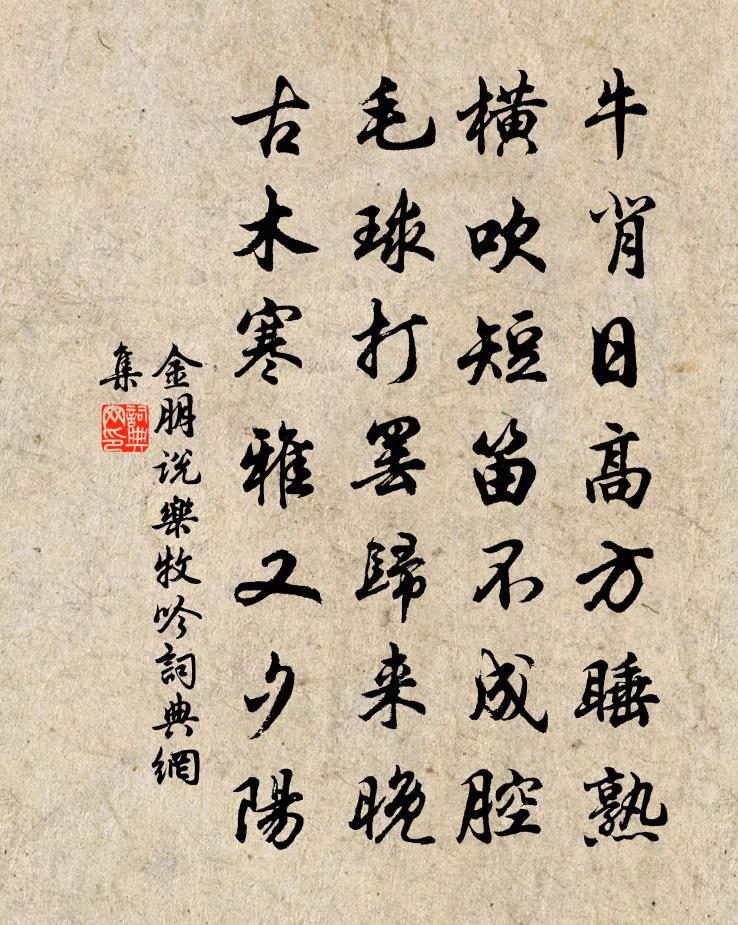 牛背日高方睡熟
橫吹短笛不成腔
毛球打罢歸来晚
古木寒雅又夕陽
金朋说樂牧吟詞典網
集
詞典
网印